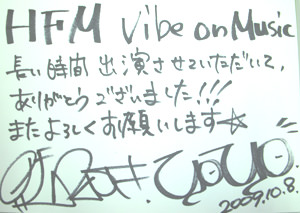 HFM Vibe on Music
長い時間 出演させていただいて、
ありがとうございました!!!
またよろしくお願いします☆
2009.10.8.